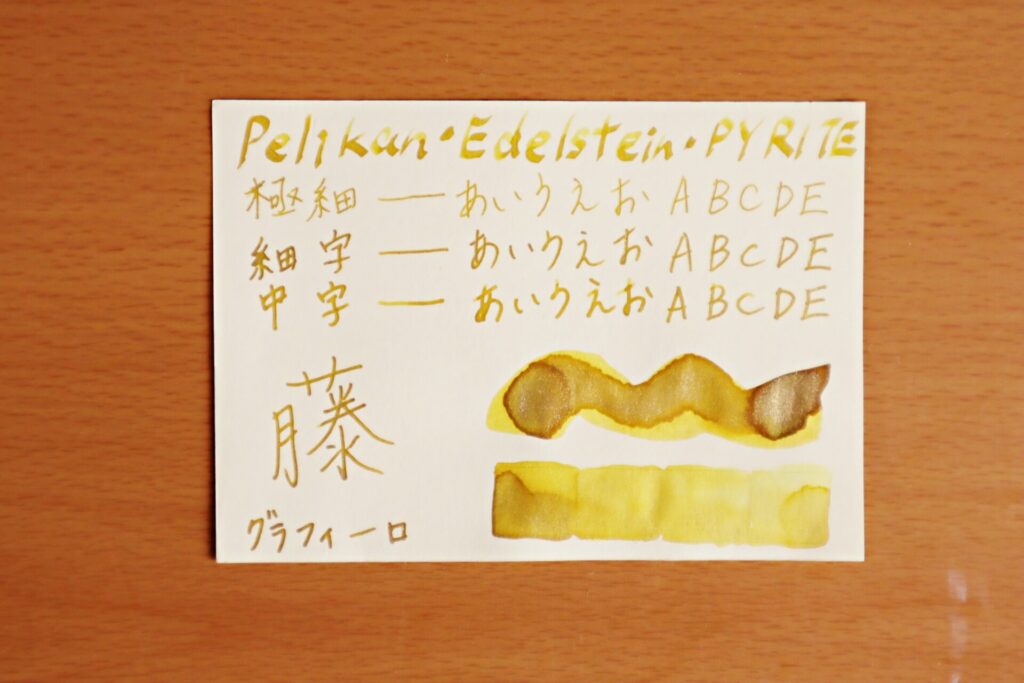 Pelikan・Edelstein・PYRITE
極細 — あいうえお ABCDE
細字 — あいうえお ABCDE
中字 — あいうえお ABCDE
藤
グラフィーロ